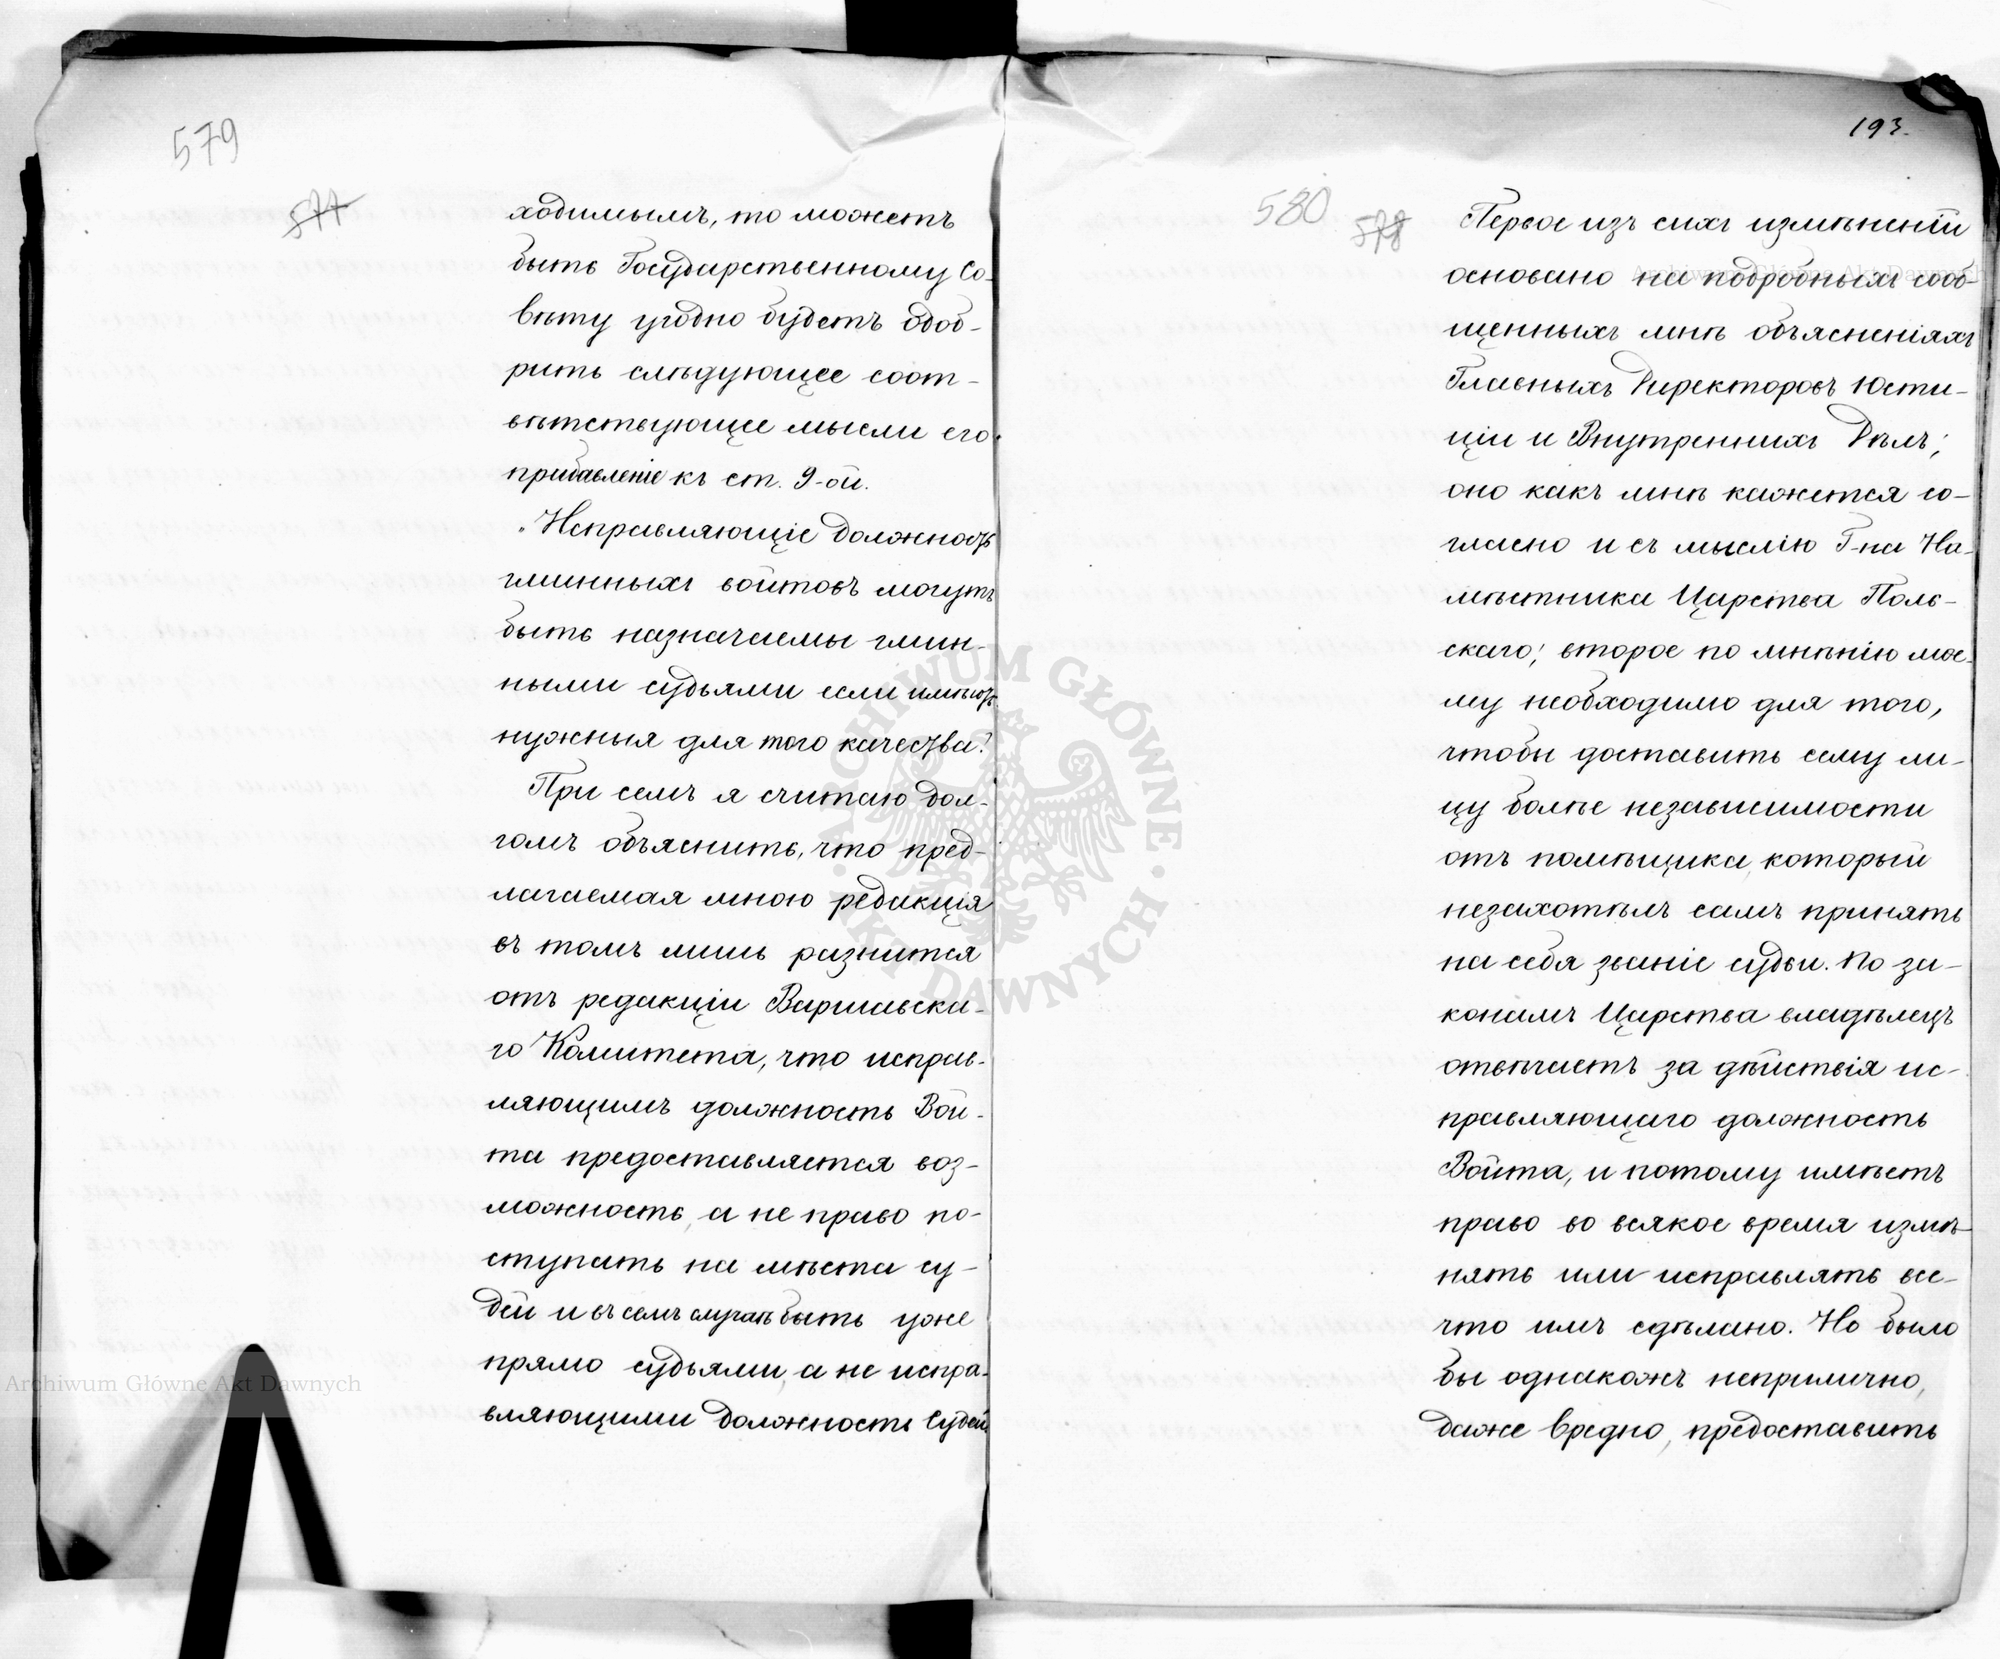 579
577
ходимымъ, то можетъ
быть Государственному Со-
вѣту угодно будетъ одоб-
рить слѣдующее соот-
вѣтствующее мысли его
прибавленіе къ ст. 9-ой.
„Исправляющіе должность
гминныхъ войтовъ могутъ
быть назначаемы гмин-
ными судьями если имѣютъ
нужныя для того качества."
При семъ я считаю дол-
гомъ объяснить, что пред-
лагаемая мною редакція
въ томъ лишь разнится
отъ редакціи Варшавска-
го Комитета, что исправ-
ляющимъ должность Вой-
та предоставляется воз-
можность, а не право по-
ступать на мѣста су-
дей и въ семъ случаѣ быть уже
прямо судьями, а не испра-
вляющими должность Судей.
193.
580
578
Первое изъ сихъ измѣненій
основано на подробныхъ сооб-
щенныхъ мнѣ объясненіяхъ
Главныхъ Директоровъ Юсти-
ціи и Внутреннихъ Дѣлъ;
оно какъ мнѣ кажется со-
гласно и съ мыслію Г-на На-
мѣстника Царства Поль-
скаго; второе по мнѣнію мое-
му необходимо для того,
чтобы доставить сему ли-
цу болѣе независимости
отъ помѣщика, который
незахотѣлъ самъ принять
на себя званіе судьи. По за-
конамъ Царства владѣлецъ
отвѣчаетъ за дѣйствія ис-
правляющаго должность
Войта, и потому имѣетъ
право во всякое время измѣ-
нять или исправлять все-
что имъ сдѣлано. Но было
бы однакожъ неприлично,
даже вредно, предоставить
Archiwum Główne Akt Dawnych
Archiwum Główne Akt Dawnych
ARCHIWUM GŁÓWNE
AKT DAWNYCH